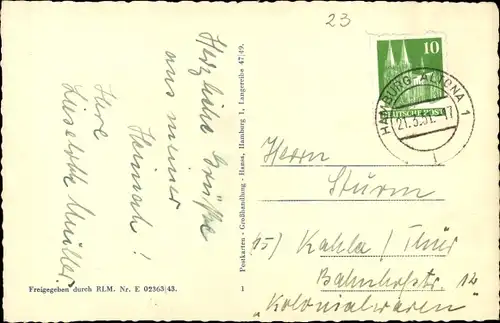 23
Herzliche Grüße
aus meiner
Heimat!
Ihre
Lieselotte Müller
Freigegeben durch RLM. Nr. E 02363/43.
Postkarten - Großhandlung - Hansa, Hamburg 1, Langereihe 47/49.
1
10
DEUTSCHE POST
HAMBURG-ALTONA 1
21.3.51. 17
Herrn
Sturm
15) Kahla / Thür
Bahnhofstr. 12
"Kolonialwaren"